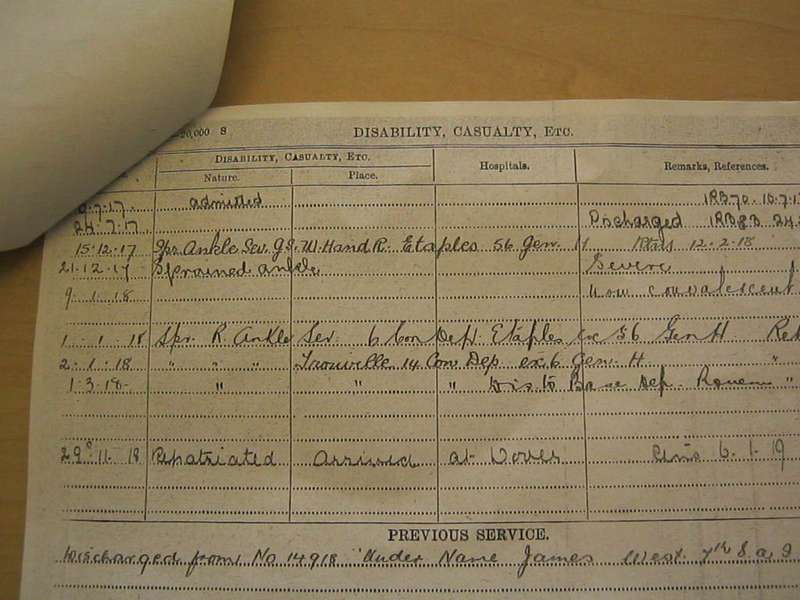 20,000 S DISABILITY, CASUALTY, ETC.
DISABILITY, CASUALTY, ETC. Hospitals. Remarks, References.
Nature. Place.
7.17 admitted
24.7.17 Discharged
15.12.17 Spr Ankle Sev. G.S.W. Hand R. Etaples 56 Gen. H 12.2.18
21.12.17 Sprained ankle Severe
9.1.18 now convalescent
1.1.18 Spr. R. Ankle Sev. 6 Con Dep. Etaples ex 56 Gen H
2.1.18 " " " Trouville 14 Con Dep. ex 6 Gen. H "
1.3.18 " " " Dis to Base Dep. Rouen "
29.11.18 Repatriated Arrived at Dover 6.1.19
PREVIOUS SERVICE.
Discharged from No 14918 Under Name James West 7th S.a.I